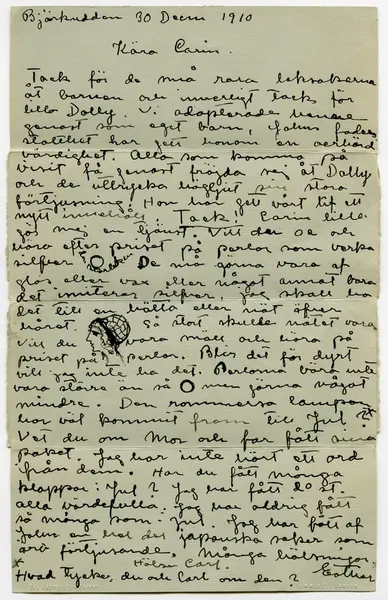 Björkudden 30 Decem 1910
Kära Carin.
Tack för de små rara leksakerna
åt barnen och innerligt tack för
lilla Dolly. Vi adopterade henne
genast som eget barn, Johns faders
stolthet har gett honom en
värdighet. Alla som komma på
visit få genast fröjda sig åt Dolly
och de uttrycka högljutt sin stora
förtjusning. Hon har gett vårt lif ett
nytt innehåll. Tack! Carin lilla
gör mig en tjänst. Vill du se och
höra efter priset på perlor som verka
silfver O De må gärna vara af
glas eller vax eller något annat bara
det imiterar silfver, jag skall ha
det till en hätta eller nät öfver
håret. Så stort skulle nätet vara
Vill du vara snäll och höra på
priset på perlor. Blir det för dyrt
vill jag inte ha det. Perlorna böra inte
vara större än så O men gärna något
mindre. Den lampan
har väl kommit fram till Jul?
Vet du om Mor och far fått sina
paket. Jag har inte hört ett ord
från dem. Har du fått många
klappar i Jul? Jag har fått 20 st.
alla värdefulla. Jag har aldrig fått
så många som i Jul. Jag har fått af
John en hel del japanska saker som
äro förtjusande. Många hälsningar
Hälsa Carl. Esther
Hvad tycker du och Carl om den?